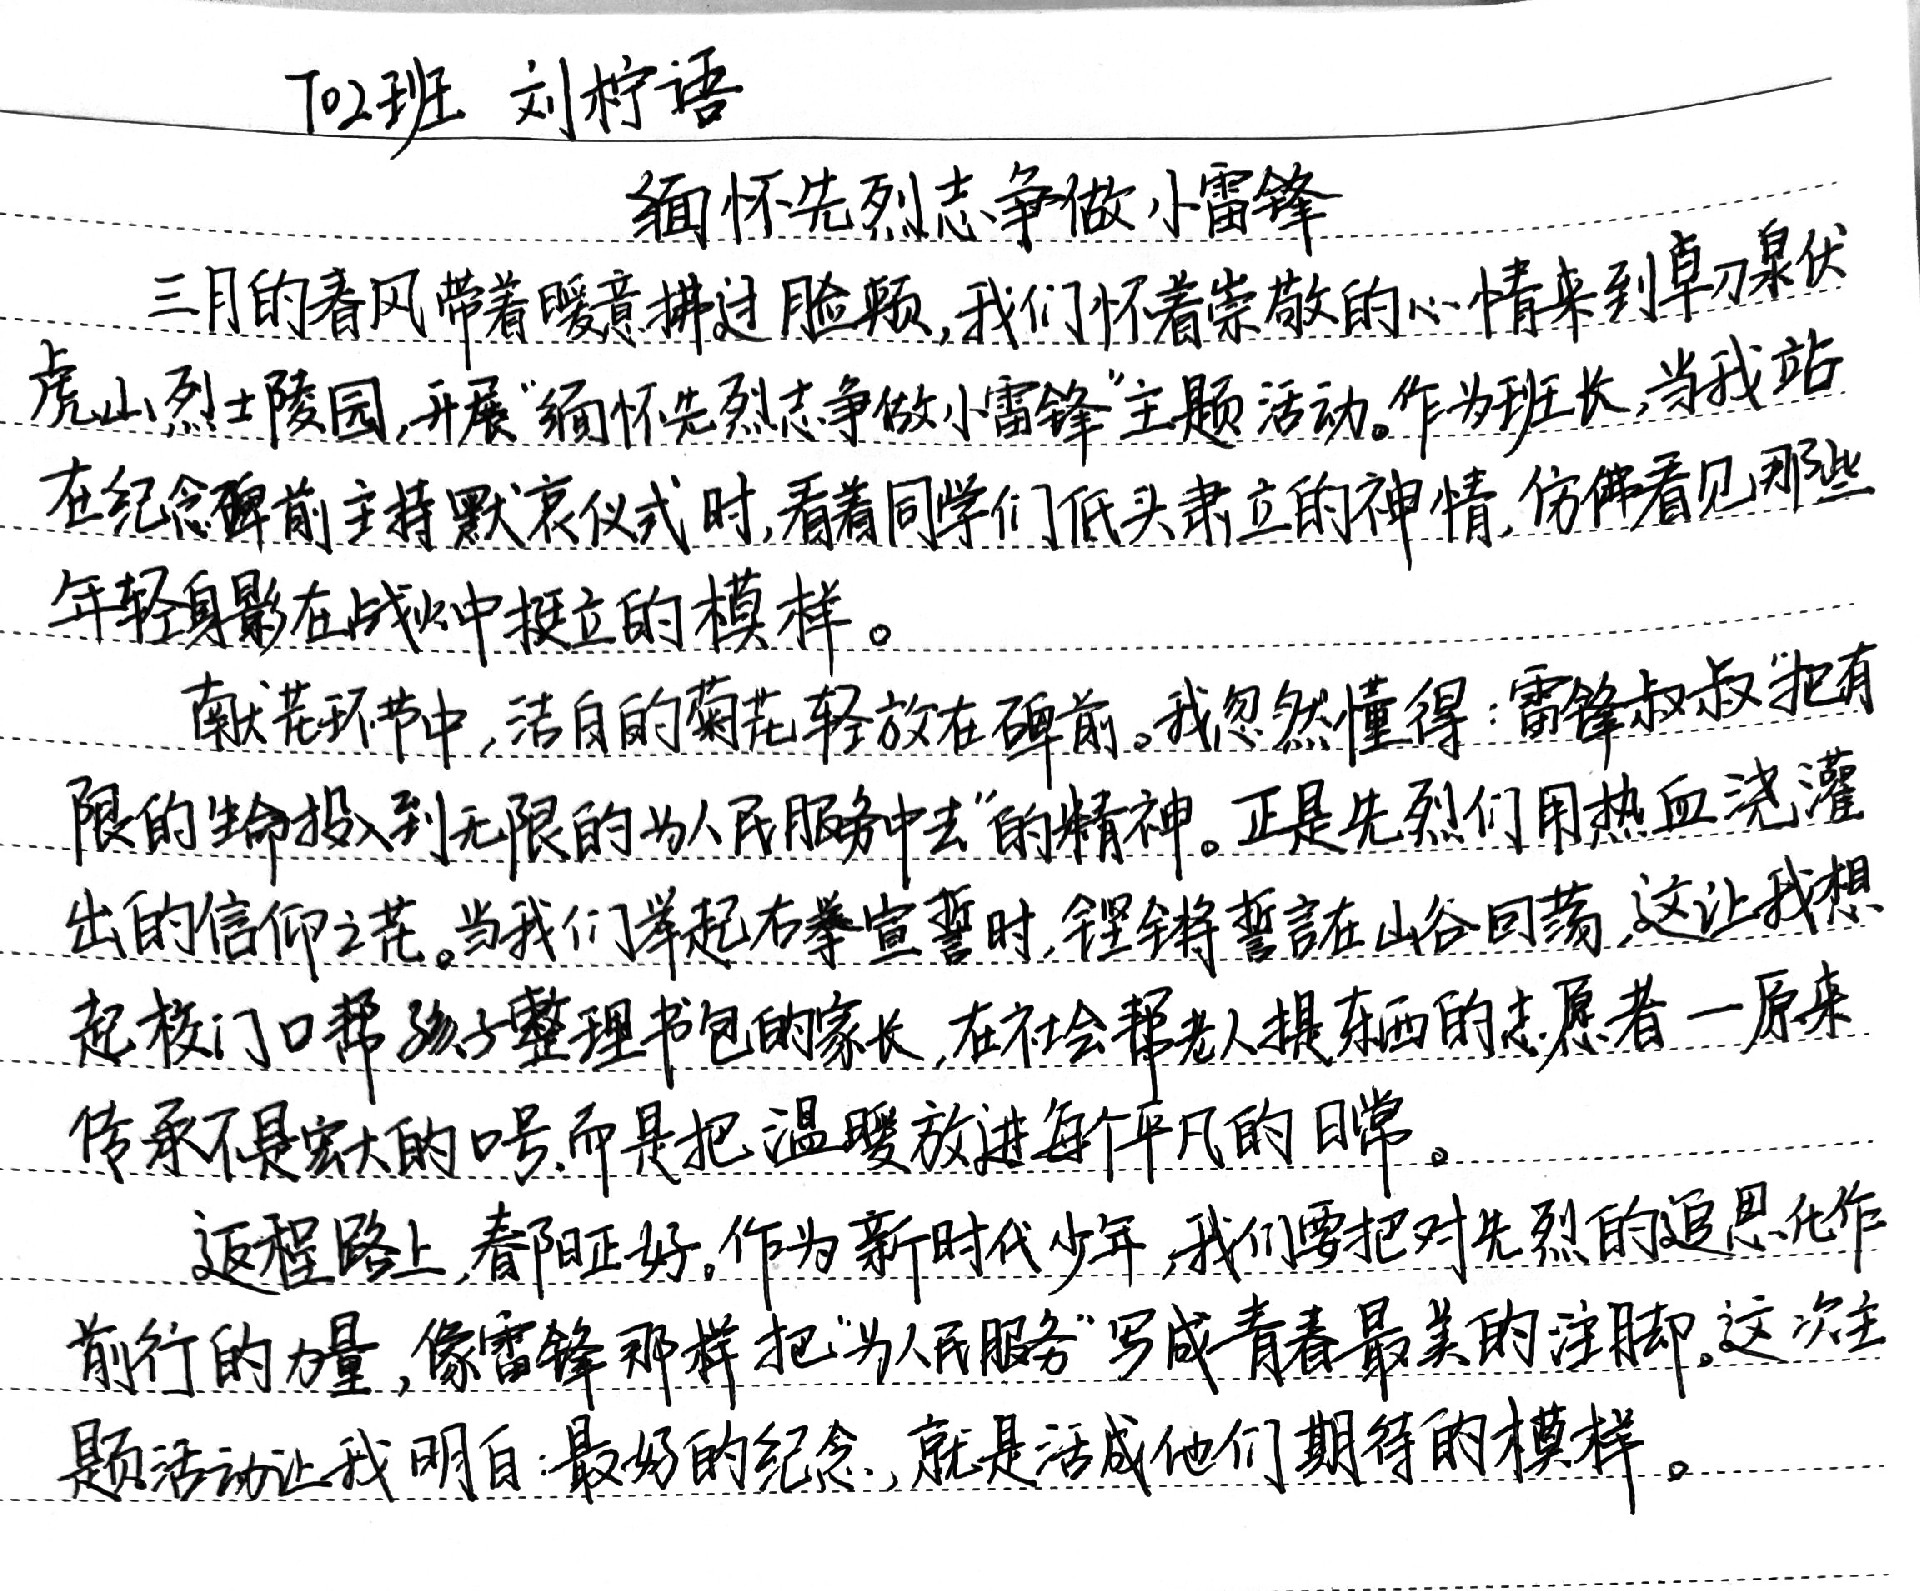 702班 刘柠语
缅怀先烈志争做小雷锋
三月的春风带着暖意拂过脸颊,我们怀着崇敬的心情来到卓刀泉伏
虎山烈士陵园,开展“缅怀先烈志争做小雷锋”主题活动。作为班长,当我站
在纪念碑前主持默哀仪式时,看着同学们低头肃立的神情,仿佛看见那些
年轻身影在战火中挺立的模样。
献花环节中,洁白的菊花轻放在碑前。我忽然懂得:雷锋叔叔“把有
限的生命投入到无限的为人民服务中去”的精神。正是先烈们用热血浇灌
出的信仰之花。当我们举起右拳宣誓时,铿锵誓言在山谷回荡,这让我想
起校门口帮孩子整理书包的家长,在社会帮老人提东西的志愿者—原来
传承不是宏大的口号,而是把温暖放进每个平凡的日常。
返程路上,春阳正好。作为新时代少年,我们要把对先烈的追思化作
前行的力量,像雷锋那样把“为人民服务”写成青春最美的注脚。这次主
题活动让我明白:最好的纪念,就是活成他们期待的模样。